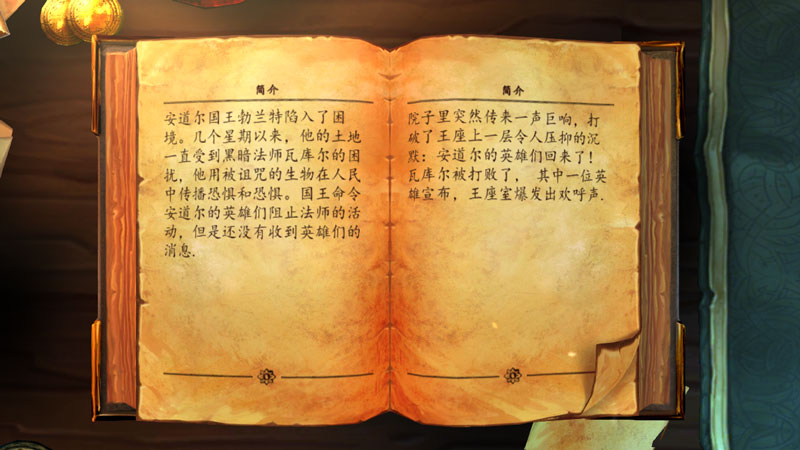 简介
安道尔国王勃兰特陷入了困
境。几个星期以来，他的土地
一直受到黑暗法师瓦库尔的困
扰，他用被诅咒的生物在人民
中传播恐惧和恐惧。国王命令
安道尔的英雄们阻止法师的活
动，但是还没有收到英雄们的
消息.
简介
院子里突然传来一声巨响，打
破了王座上一层令人压抑的沉
默：安道尔的英雄们回来了！
瓦库尔被打败了， 其中一位英
雄宣布，王座室爆发出欢呼声.